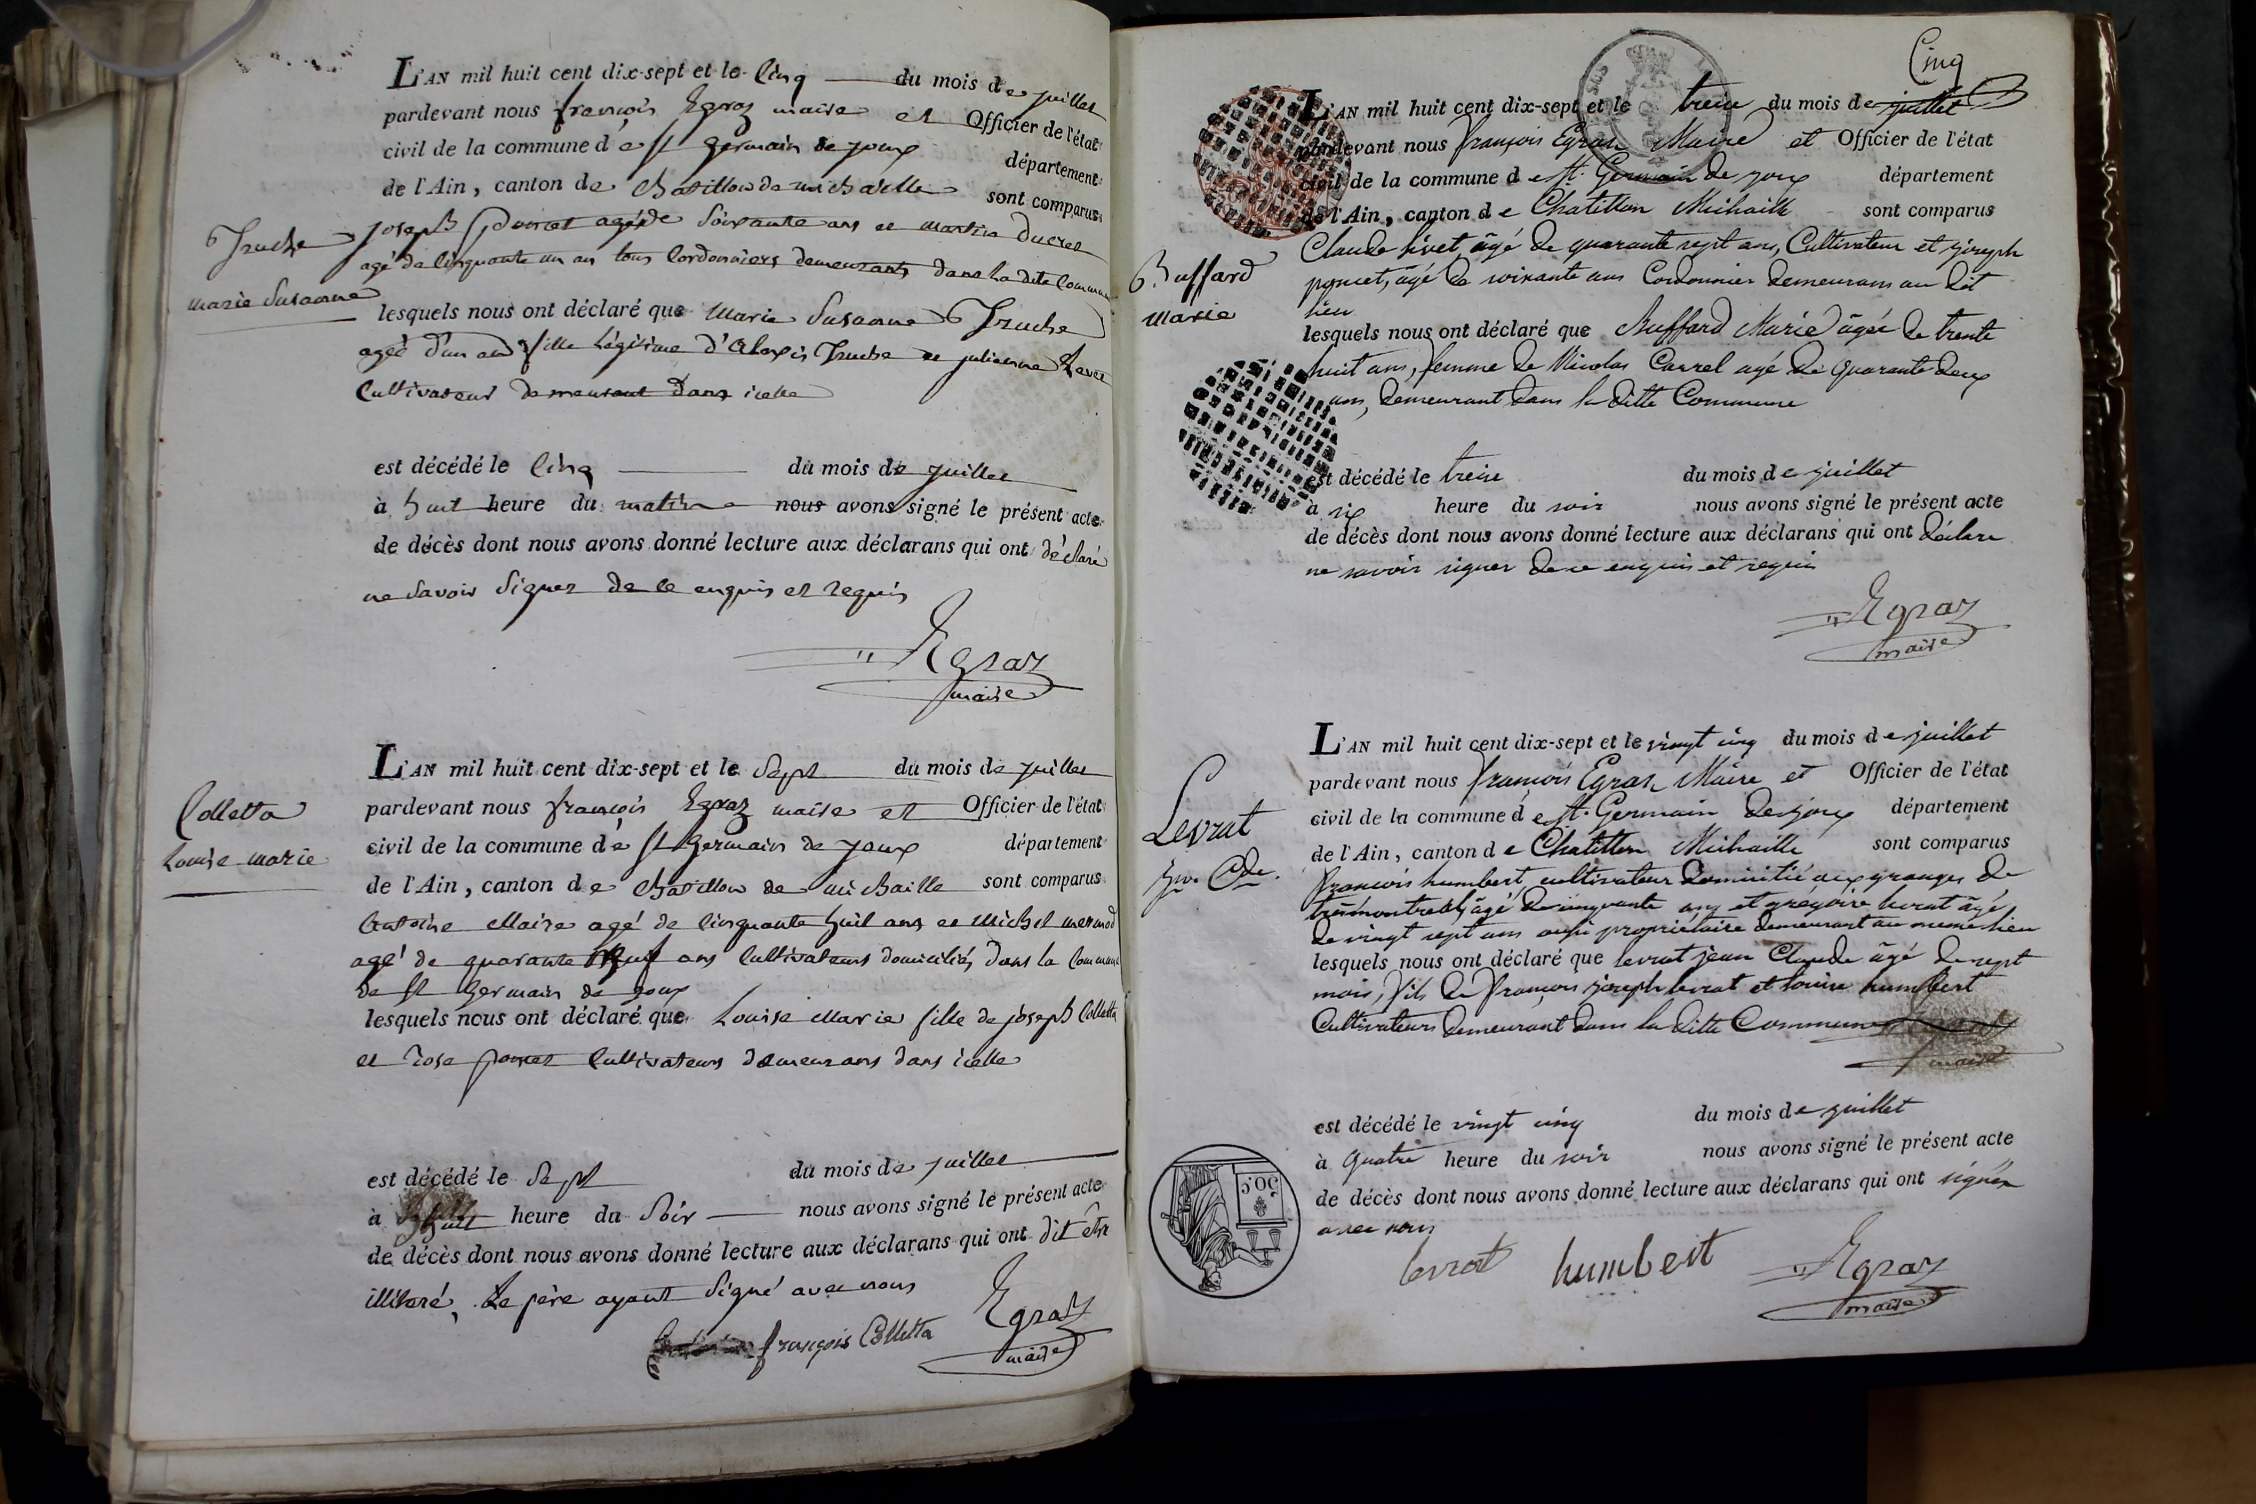 L'AN mil huit cent dix-sept et le Cinq du mois de juillet
pardevant nous françois Egraz maire et Officier de l'état
civil de la commune de st germain de joux département
de l'Ain, canton de Chatillon de michaille sont comparus
Truche
marie Susanne
joseph poncet agé de Soixante ans et martin Ducret
agé de Cinquante un an tous Cordonniers demeurants dans la dite Commune
lesquels nous ont déclaré que Marie Susanne Truche
agée d'un an fille légitime d'Alexis Truche et julienne
Cultivateur demeurant dans icelle
est décédé le Cinq du mois de juillet
à huit heure du matin nous avons signé le présent acte
de décès dont nous avons donné lecture aux déclarans qui ont déclaré
ne Savoir Signer de ce enquis et requis
Egraz
maire
Colletta
Louise marie
L'AN mil huit cent dix-sept et le Sept du mois de juillet
pardevant nous françois Egraz maire et Officier de l'état
civil de la commune de st germain de joux département
de l'Ain, canton de Chatillon de michaille sont comparus
Antoine Maire agé de Cinquante huit ans et Michel
agé de quarante neuf ans Cultivateurs domiciliés dans la Commune
de st germain de joux
lesquels nous ont déclaré que Louise Marie fille de joseph Colletta
et rose poncet Cultivateurs demeurans dans icelle
est décédé le Sept du mois de juillet
à huit heure du Soir nous avons signé le présent acte
de décès dont nous avons donné lecture aux déclarans qui ont dit être
illiteré, Le père ayant Signé avec nous
françois Colletta
Egraz
maire
Cinq
L'AN mil huit cent dix-sept et le treize du mois de juillet
pardevant nous françois Egraz Maire et Officier de l'état
civil de la commune de st. Germain de joux département
de l'Ain, canton de Chatillon Michaille sont comparus
Buffard
Marie
Claude livet, âgé de quarante sept ans, Cultivateur et joseph
poncet, âgé de soixante ans Cordonnier demeurans au dit
lieu
lesquels nous ont déclaré que Buffard Marie âgée de trente
huit ans, femme de Nicolas Carrel agé de quarante deux
ans, demeurant dans la ditte Commune
est décédé le treize du mois de juillet
à six heure du soir nous avons signé le présent acte
de décès dont nous avons donné lecture aux déclarans qui ont déclare
ne savoir signer de ce enquis et requis
Egraz
maire
Levrat
jn. Cde.
L'AN mil huit cent dix-sept et le vingt cinq du mois de juillet
pardevant nous françois Egraz Maire et Officier de l'état
civil de la commune de st. Germain de joux département
de l'Ain, canton de Chatillon Michaille sont comparus
françois humbert, cultivateur domicilié aux granges de
âgé de cinquante ans et grégoire levrat âgé
de vingt sept ans aussi propriétaire demeurant au meme lieu
lesquels nous ont déclaré que levrat jean Claude âgé de sept
mois, fils de françois joseph levrat et louise humbert
Cultivateurs demeurant dans la ditte Commune
maire
est décédé le vingt cinq du mois de juillet
à quatre heure du soir nous avons signé le présent acte
de décès dont nous avons donné lecture aux déclarans qui ont signés
avec nous
50 C.
levrat humbert Egraz
maire